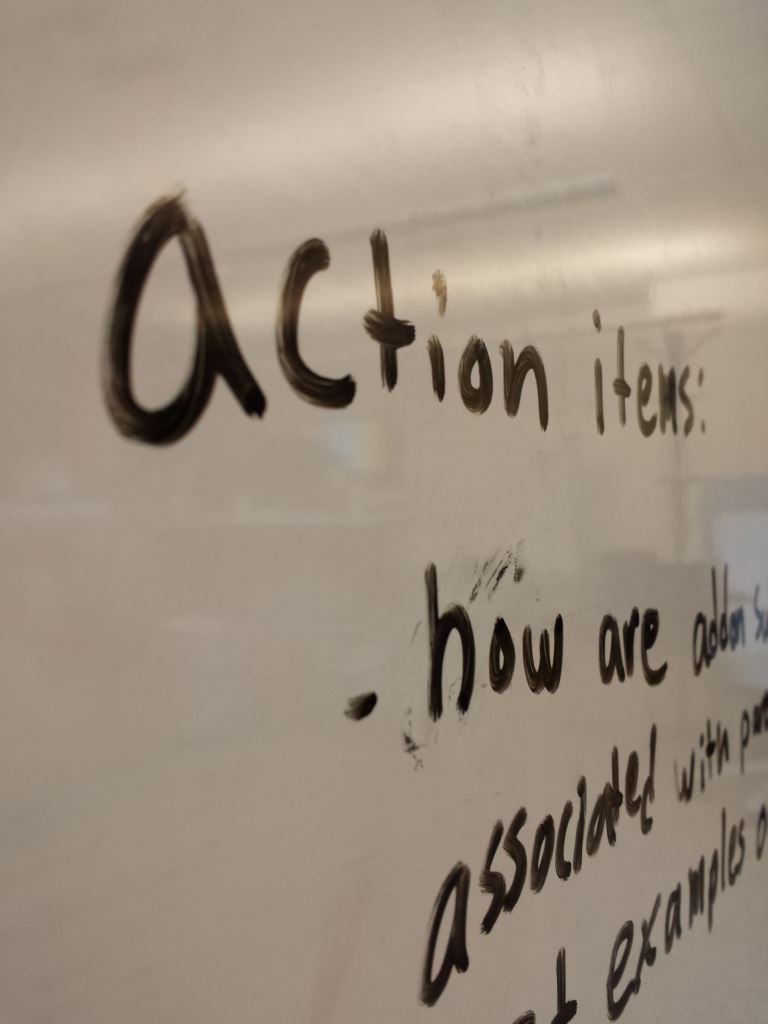 Action items:
- how are addon
associated with
examples